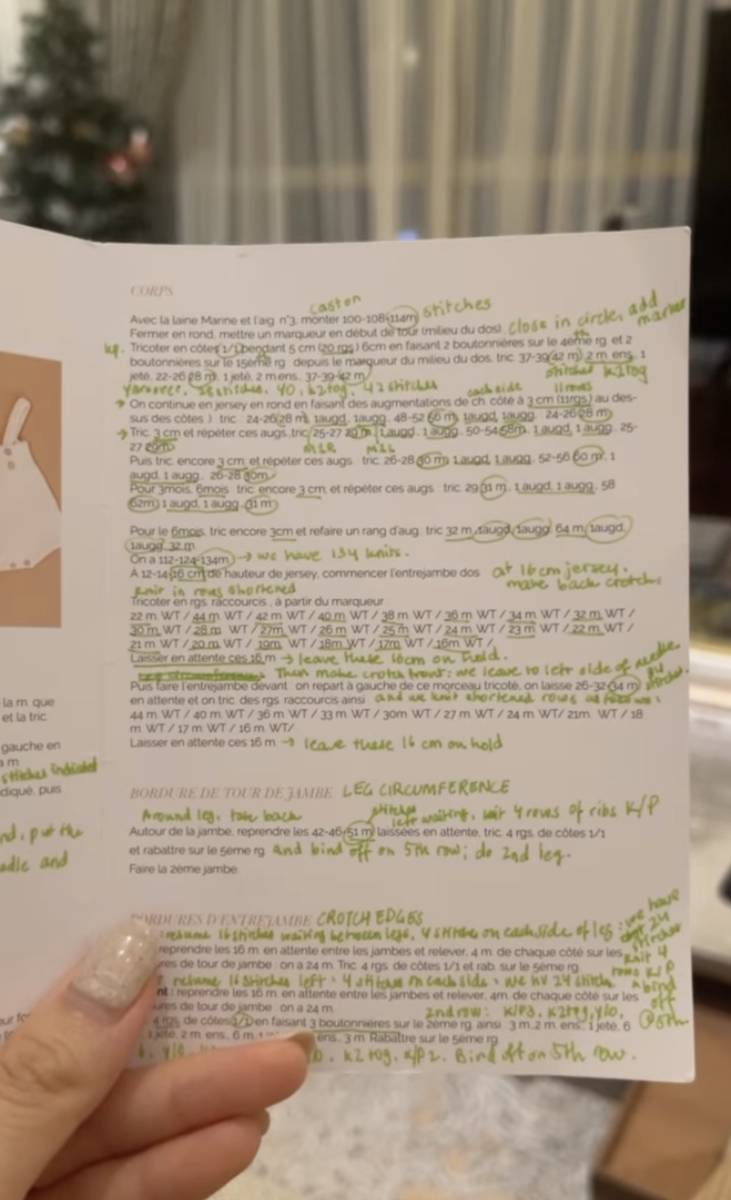 CORPS
caston
Avec la laine Marine et l'aig. n°3, monter 100-108-(114m) stitches
Fermer en rond, mettre un marqueur en début de tour (milieu du dos). close in circle, add marker
Tricoter en côtes 1/1 pendant 5 cm (20 rgs) 6cm en faisant 2 boutonnières sur le 4ème rg et 2
boutonnières sur le 15ème rg : depuis le marqueur du milieu du dos, tric. 37-39-(42 m), 2 m ens, 1
stitches k2tog
jeté, 22-26-28 m, 1 jeté, 2 m ens, 37-39-42 m
yarnover, stitches, yo, k2tog, 42 stitches each side 11 rows
On continue en jersey en rond en faisant des augmentations de ch. côté à 3 cm (11rgs) au des-
sus des côtes : tric. 24-26-28 m, 1augd, 1augg, 48-52-56 m, 1augd, 1augg, 24-26-28 m
Tric. 3 cm et répéter ces augs. tric. 25-27-29 m, 1augd, 1 augg, 50-54-58m, 1 augd, 1 augg, 25-
27-29m M1R M1L
Puis tric. encore 3 cm et répéter ces augs : tric. 26-28-30 m, 1 augd, 1 augg, 52-56-60 m, 1
augd, 1 augg, 26-28-30m
Pour 3mois, 6mois : tric. encore 3 cm et répéter ces augs : tric. 29-31 m, 1 augd, 1 augg, 58
62m, 1 augd, 1 augg, 31 m
Pour le 6mois, tric. encore 3cm et refaire un rang d'aug. tric 32 m, 1augd, 1augg, 64 m, 1augd,
1augg, 32 m
On a 112-124-134m → we have 134 knits.
A 12-14-16 cm de hauteur de jersey, commencer l'entrejambe dos at 16 cm jersey,
make back crotch:
knit in rows shortened
Tricoter en rgs raccourcis, à partir du marqueur
22 m WT / 44 m WT / 42 m WT / 40 m WT / 38 m WT / 36 m WT / 34 m WT / 32 m WT /
30 m WT / 28 m WT / 27m WT / 26 m WT / 25 m WT / 24 m WT / 23 m WT / 22 m WT /
21 m WT / 20 m WT / 19m WT / 18m WT / 17m WT / 16m WT /
Laisser en attente ces 16 m → leave these 16cm on hold.
Then make crotch front: we leave to left side of
Puis faire l'entrejambe devant : on repart à gauche de ce morceau tricoté, on laisse 26-32-34 m
en attente et on tric. des rgs raccourcis ainsi and we knit shortened rows as follows:
44 m WT / 40 m WT / 36 m WT / 33 m WT / 30m WT / 27 m WT / 24 m WT / 21m WT / 18
m WT / 17 m WT / 16 m WT/
Laisser en attente ces 16 m → leave these 16 cm on hold
BORDURE DE TOUR DE JAMBE LEG CIRCUMFERENCE
Around leg, take back stitches left waiting, knit 4 rows of ribs K/P
Autour de la jambe, reprendre les 42-46-51 m laissées en attente, tric. 4 rgs. de côtes 1/1
et rabattre sur le 5ème rg and bind off on 5th row; do 2nd leg.
Faire la 2ème jambe
BORDURES D'ENTREJAMBE CROTCH EDGES
resume 16 stitches waiting between legs, 4 stitches on each side of leg: we have
24 stitches
reprendre les 16 m. en attente entre les jambes et relever, 4 m de chaque côté sur les
knit 4
res de tour de jambe : on a 24 m. Tric. 4 rgs. de côtes 1/1 et rab. sur le 5ème rg
rows K/P
resume 16 stitches left + 4 stitches on each side = we hv 24 stitches
& bind off @ 5th
nt : reprendre les 16 m. en attente entre les jambes et relever, 4m. de chaque côté sur les
ures de tour de jambe : on a 24 m. 2nd row: K/P3, K2tog, y/o,
4 rgs. de côtes 1/1 en faisant 3 boutonnières sur le 2ème rg. ainsi : 3 m, 2 m. ens, 1 jeté, 6
1 jeté, 2 m ens, 6 m, ens, 3 m. Rabattre sur le 5ème rg
k2tog, K/P 2. Bind off on 5th row.
la m. que
et la tric.
gauche en
a m
stitches indicated
diqué, puis
nd, put the
adle and